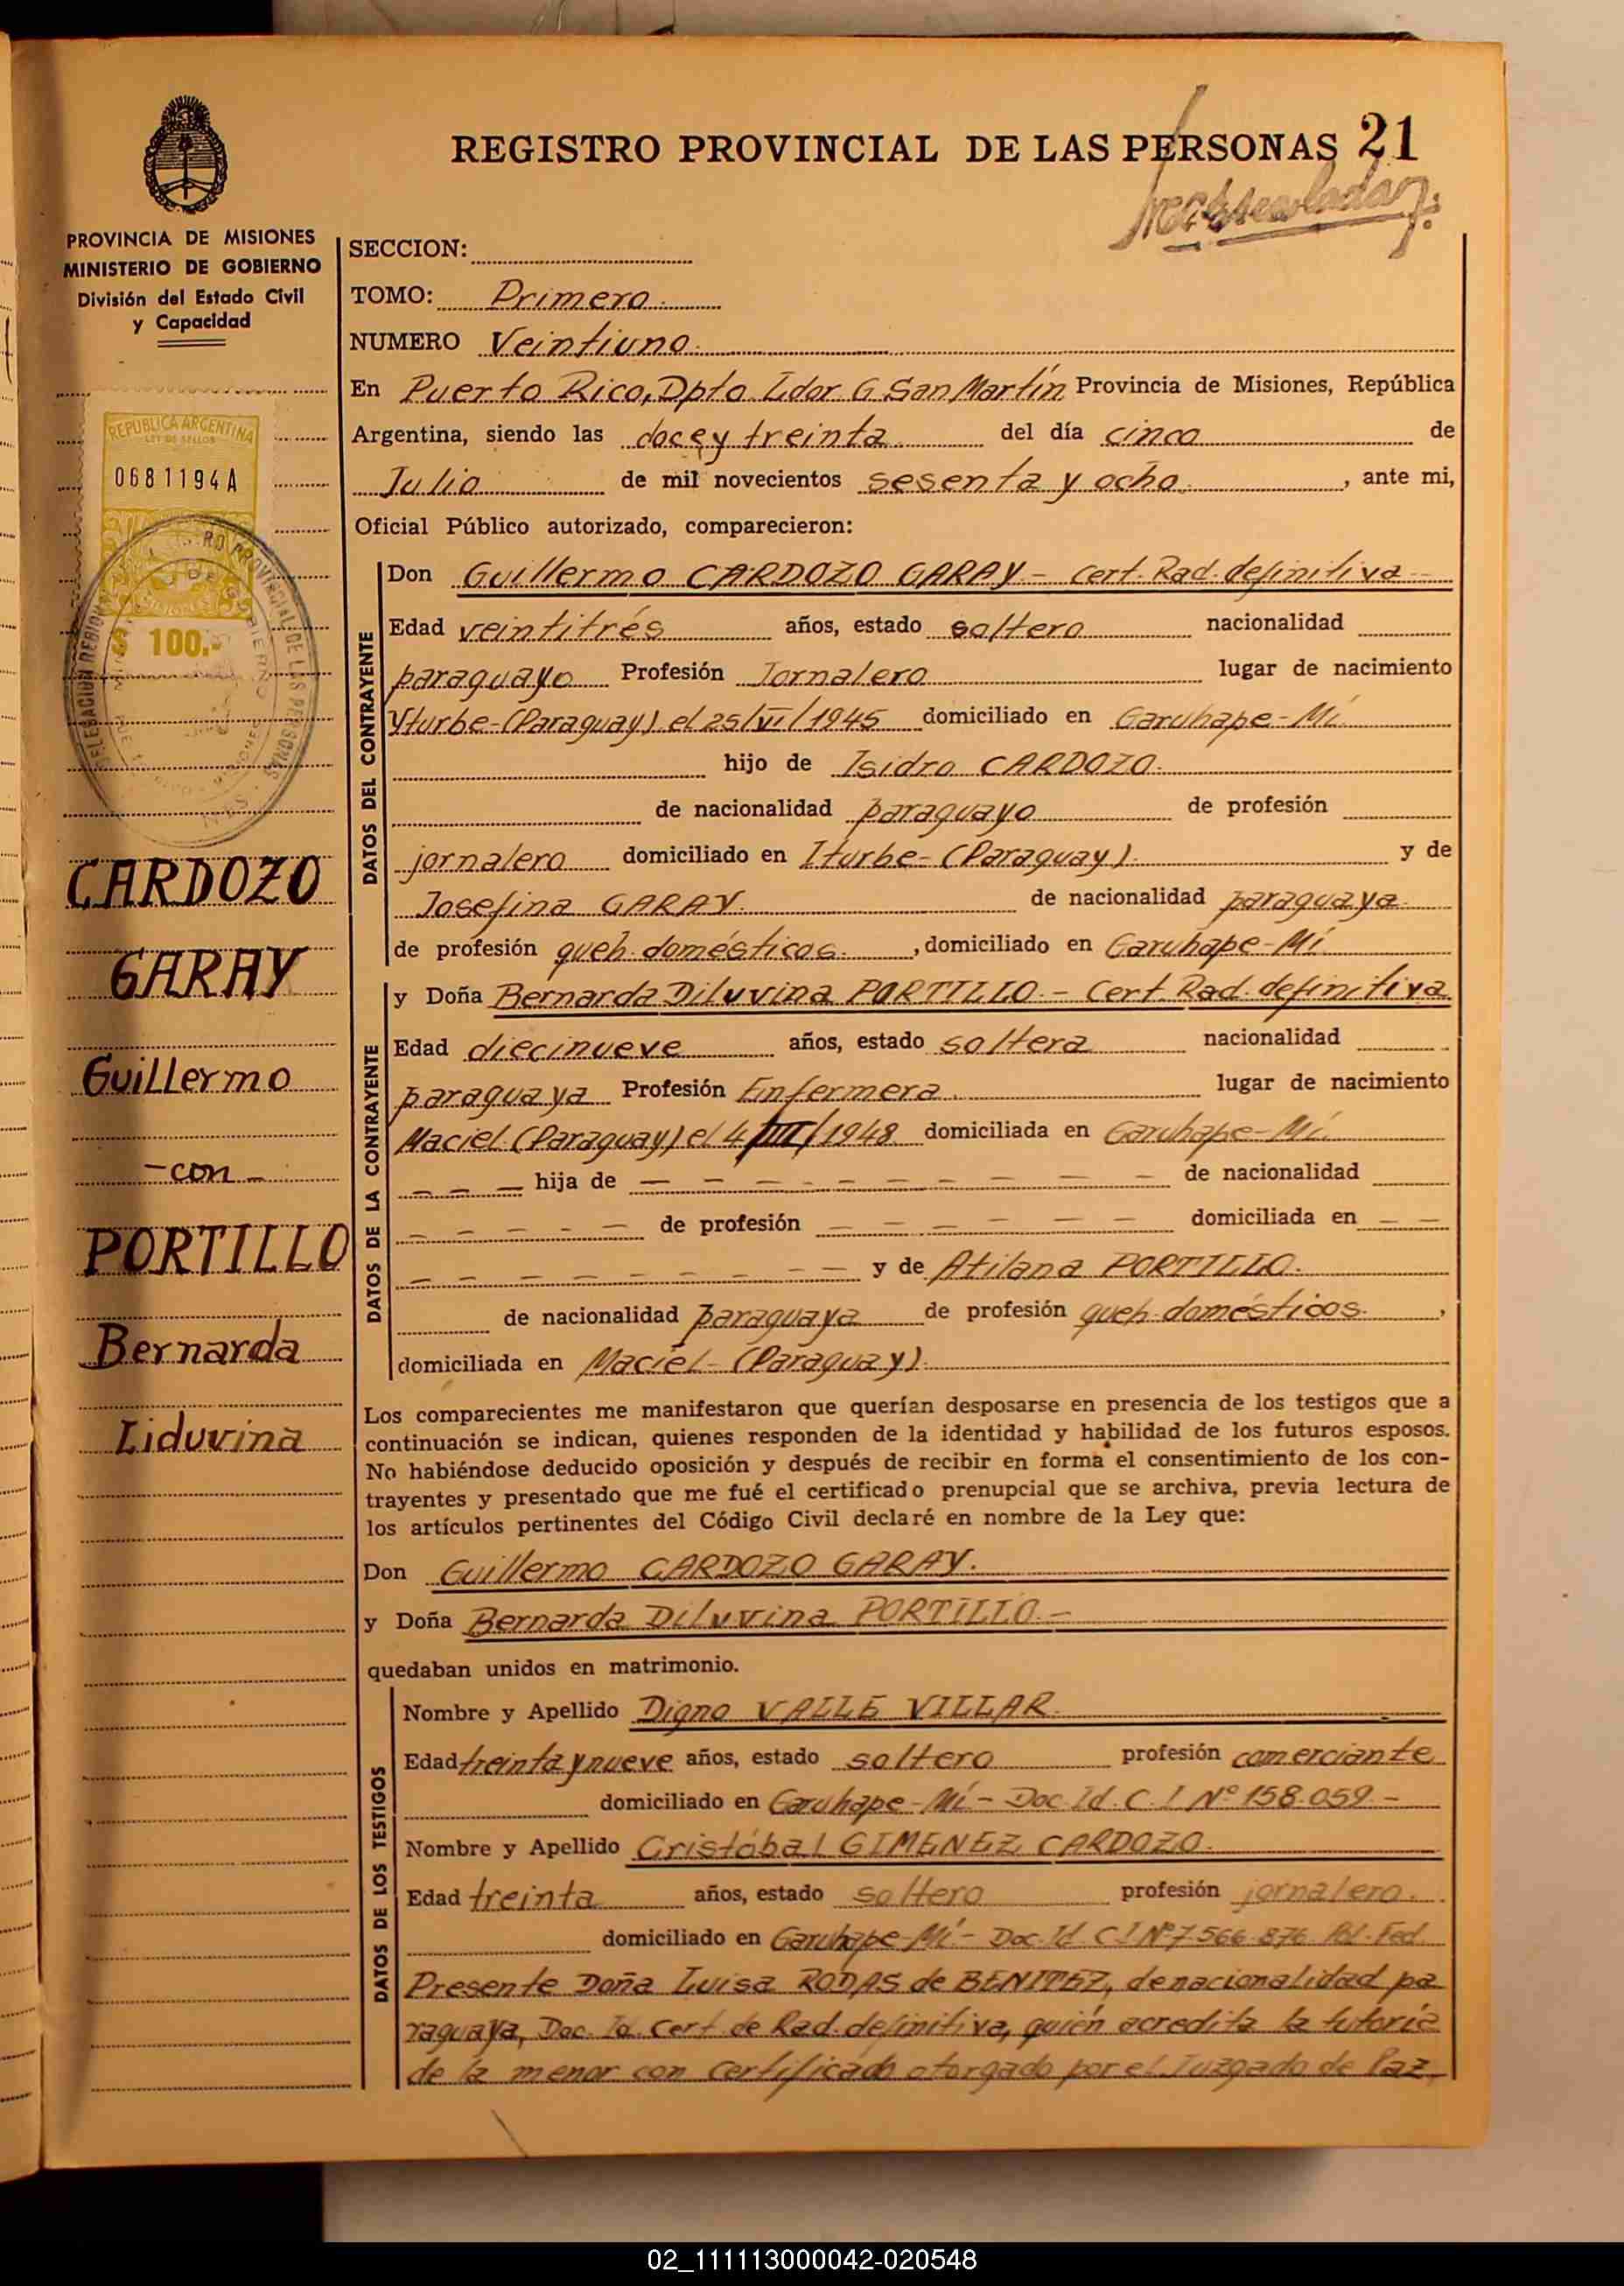 REGISTRO PROVINCIAL DE LAS PERSONAS 21
PROVINCIA DE MISIONES
MINISTERIO DE GOBIERNO
División del Estado Civil
y Capacidad
REPUBLICA ARGENTINA
LEY DE SELLOS
0681194A
$ 100.-
CARDOZO
GARAY
Guillermo
-con-
PORTILLO
Bernarda
Liduvina
SECCION:
TOMO: Primero.
NUMERO Veintiuno.
En Puerto Rico, Dpto. Ldor G. San Martín Provincia de Misiones, República
Argentina, siendo las doce y treinta del día cinco de
Julio de mil novecientos sesenta y ocho, ante mi,
Oficial Público autorizado, comparecieron:
DATOS DEL CONTRAYENTE
Don Guillermo CARDOZO GARAY - Cert. Rad. definitiva -
Edad veintitrés años, estado soltero nacionalidad
paraguayo Profesión Jornalero lugar de nacimiento
Yturbe-(Paraguay) el 25/VI/1945 domiciliado en Garuhape-Mí.
hijo de Isidro CARDOZO.
de nacionalidad paraguayo de profesión
jornalero domiciliado en Iturbe-(Paraguay). y de
Josefina GARAY. de nacionalidad paraguaya.
de profesión queh. domésticos. , domiciliado en Garuhape-Mí.
DATOS DE LA CONTRAYENTE
y Doña Bernarda Diluvina PORTILLO.- Cert. Rad. definitiva
Edad diecinueve años, estado soltera nacionalidad
paraguaya Profesión Enfermera. lugar de nacimiento
Maciel (Paraguay) el 4/ /1948 domiciliada en Garuhape-Mí.
- - - hija de - - - - - - - - - - de nacionalidad
- - - - - de profesión - - - - - - domiciliada en - -
- - - - - - - - - y de Atilana PORTILLO.
de nacionalidad paraguaya de profesión queh. domésticos. ,
domiciliada en Maciel-(Paraguay).
Los comparecientes me manifestaron que querían desposarse en presencia de los testigos que a
continuación se indican, quienes responden de la identidad y habilidad de los futuros esposos.
No habiéndose deducido oposición y después de recibir en forma el consentimiento de los con-
trayentes y presentado que me fué el certificado prenupcial que se archiva, previa lectura de
los artículos pertinentes del Código Civil declaré en nombre de la Ley que:
Don Guillermo CARDOZO GARAY.
y Doña Bernarda Diluvina PORTILLO.-
quedaban unidos en matrimonio.
DATOS DE LOS TESTIGOS
Nombre y Apellido Digno VALLE VILLAR.
Edad treinta y nueve años, estado soltero profesión comerciante
domiciliado en Garuhape-Mí- Doc. Id. C. I Nº 158.059.-
Nombre y Apellido Cristóbal GIMENEZ CARDOZO.
Edad treinta años, estado soltero profesión jornalero.
domiciliado en Garuhape-Mí- Doc. Id. C I Nº 7.566.876 Pol. Fed.
Presente Doña Luisa RODAS de BENITEZ, de nacionalidad pa
raguaya, Doc. Id. Cert. de Rad. definitiva, quién acredita la tutoría
de la menor con certificado otorgado por el Juzgado de Paz,
02_111113000042-020548